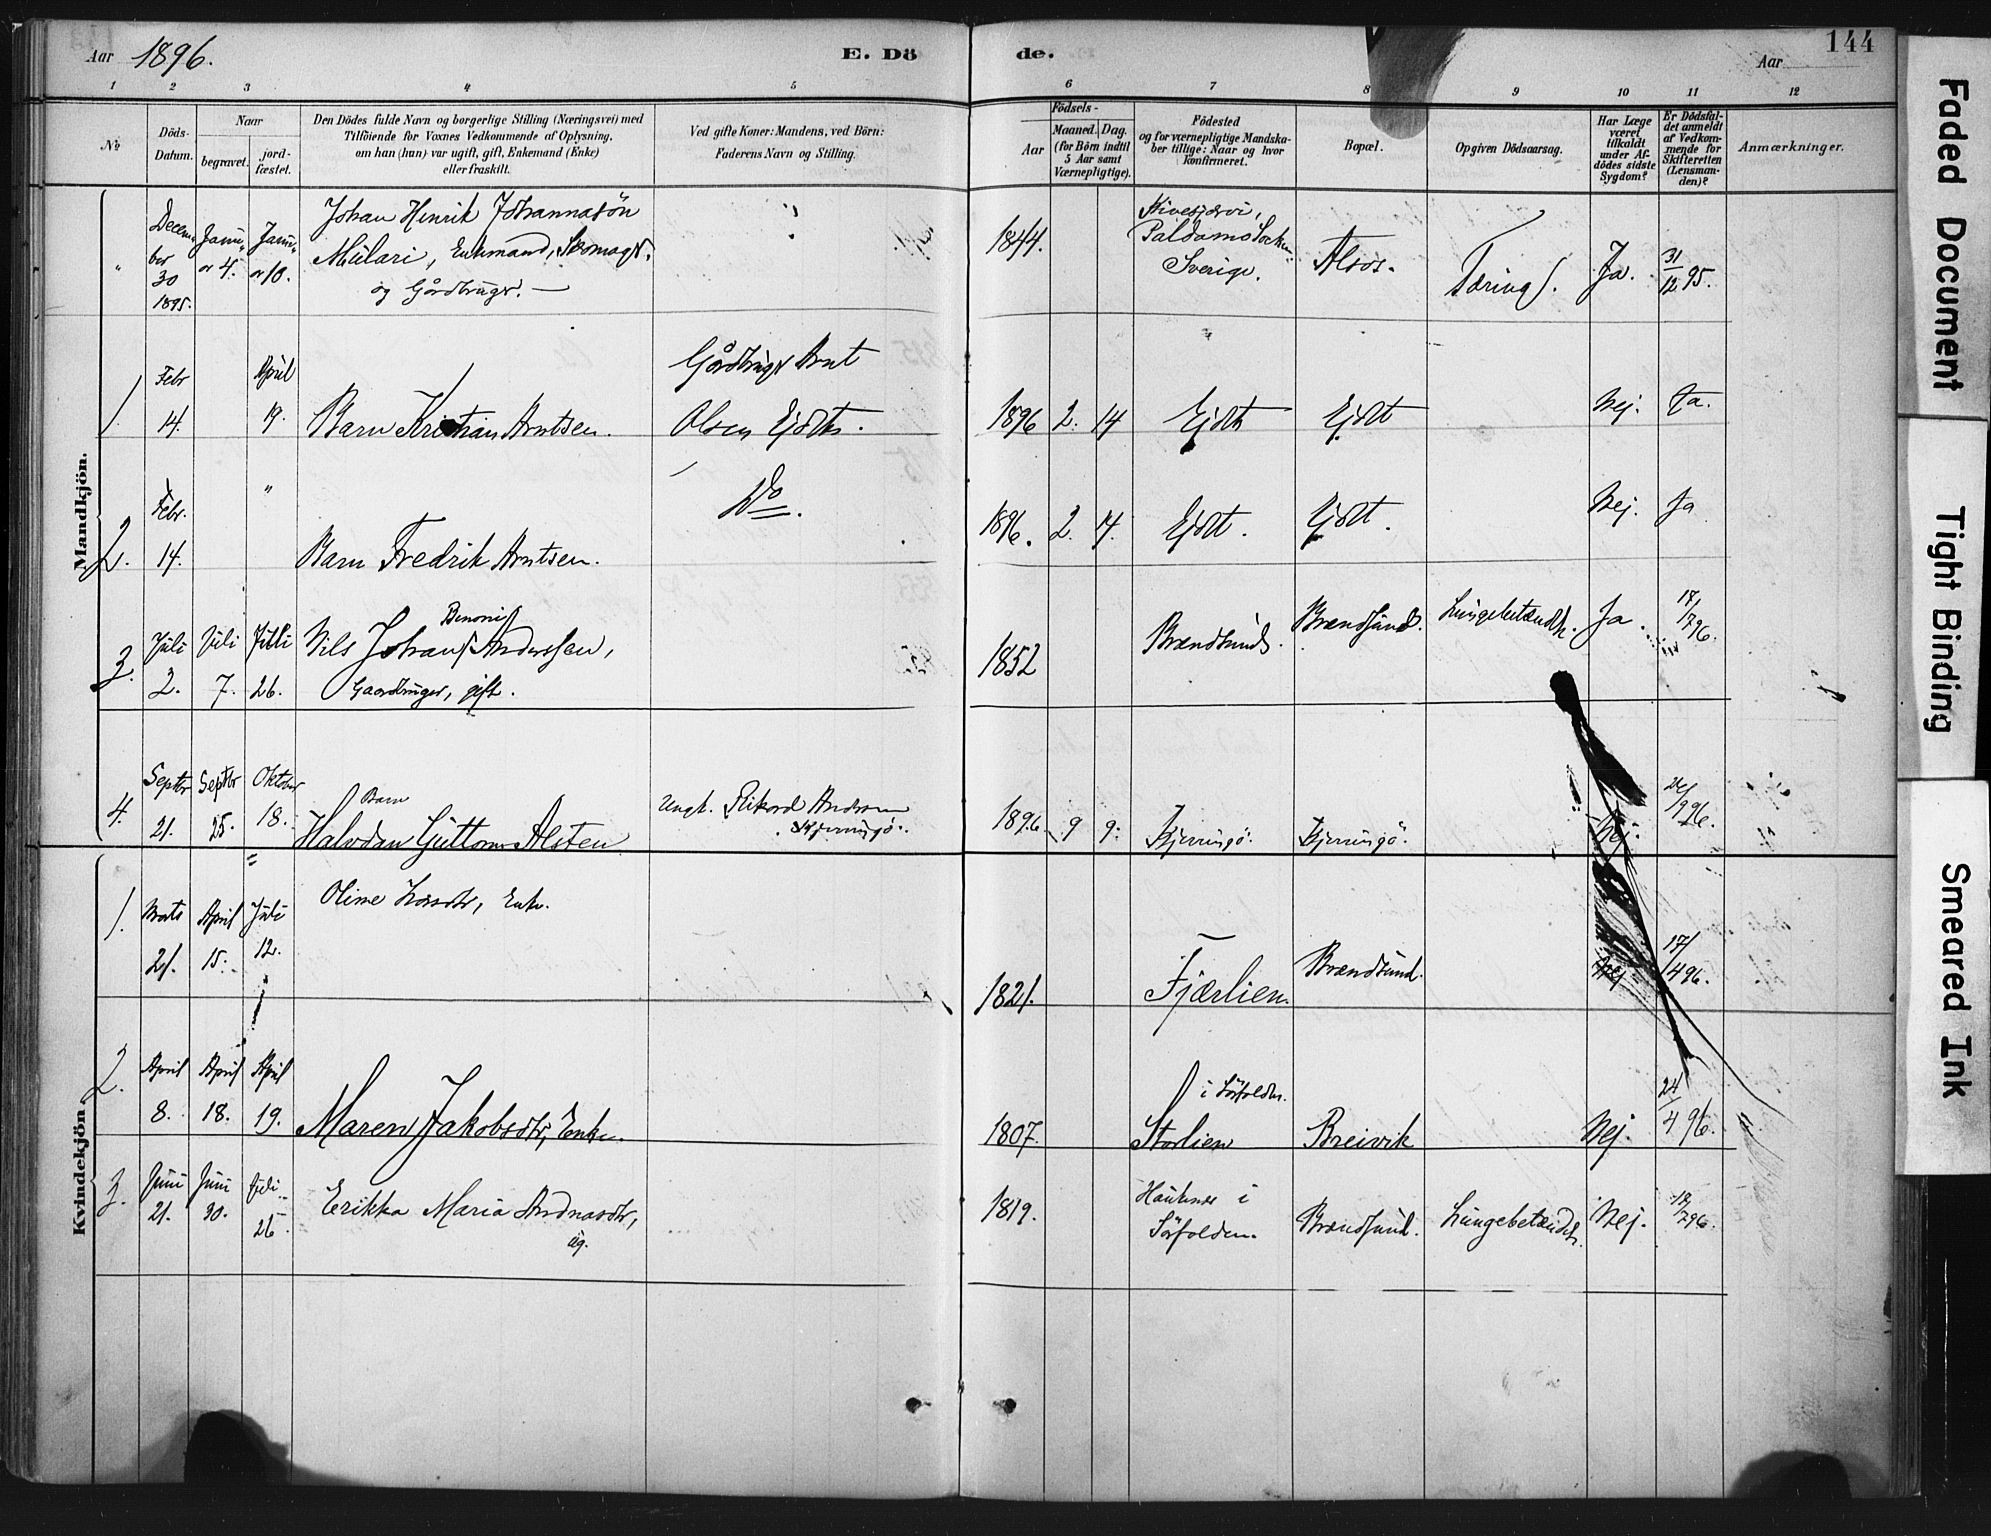 Aar 1896.
E. Dö
de.
144
Aar
1 2 3 4 5 6 7 8 9 10 11 12
No
Döds-
Datum.
Naar
begravet.
jord-
fæstet.
Den Dödes fulde Navn og borgerlige Stilling (Næringsvei) med
Tilföiende for Voxnes Vedkommende af Oplysning,
om han (hun) var ugift, gift, Enkemand (Enke)
eller fraskilt.
Ved gifte Koner: Mandens, ved Börn:
Faderens Navn og Stilling.
Födsels-
Aar
Maaned.
Dag.
(for Börn indtil
5 Aar samt
Værnepligtige).
Födested
og for værnepligtige Mandska-
ber tillige: Naar og hvor
konfirmeret.
Bopæl.
Opgiven Dödsaarsag.
Har Læge
været
tilkaldt
under Af-
dödes sidste
Sygdom?
Er Dödsfal-
det anmeldt
af Vedkom-
mende for
Skifteretten
(Lensman-
den)?
Anmærkninger.
Mandkjön.
Decem-
ber
30
1895.
Janu-
ar 4.
Janu-
ar 10.
Johan Henrik Johannasön
Mulari, Enkemand, Skomager
og Gårdbruger.
1844.
Paldamo Socken
Sverige.
Alsos.
Tæring.
Ja.
31/12 95.
1.
Febr
14.
April
19.
Barn Kristian Arntsen.
Gårdbruger Arnt
Olsen Ejdth.
1896 2. 14
Ejdth
Ejdt
Nej.
Ja.
2.
Febr.
14.
"
Barn Fredrik Arntsen.
Do.
1896. 2. 14.
Ejdt.
Ejdt.
Nej.
Ja
3.
Juli
2.
Juli
7.
Juli
26.
Benoni
Nils Johan Anderssen,
Gaardbruger, gift.
1852
Brændsund.
Brændsund.
Lungebetændelse.
Ja.
17/7 96.
4.
Septbr
21.
Septbr
25.
Oktober
18.
Barn
Halvdan Guttorm Alsten
Ungk. Rikard Andersen
Kjerringö.
1896 9 9.
Kjerringö.
Kjerringö.
Nej.
96.
Kvindekjön.
1.
Marts
21.
April
15.
Juli
12.
Oline Larsdtr, Enke.
1821.
Fjærlien.
Brændsund.
Nej
17/4 96.
2.
April
8.
April
18.
April
19.
Maren Jakobsdtr, Enke.
1807.
i Sörfolden.
Storlien
Breivik
Nej.
24/4 96.
3.
Juni
21.
Juni
30.
Juli
26
Erikka Maria Andreasdtr,
ug.
1819.
Sörfolden.
Brændsund.
Lungebetændelse.
Nej.
17/7 96.
Faded Document
Tight Binding
Smeared Ink